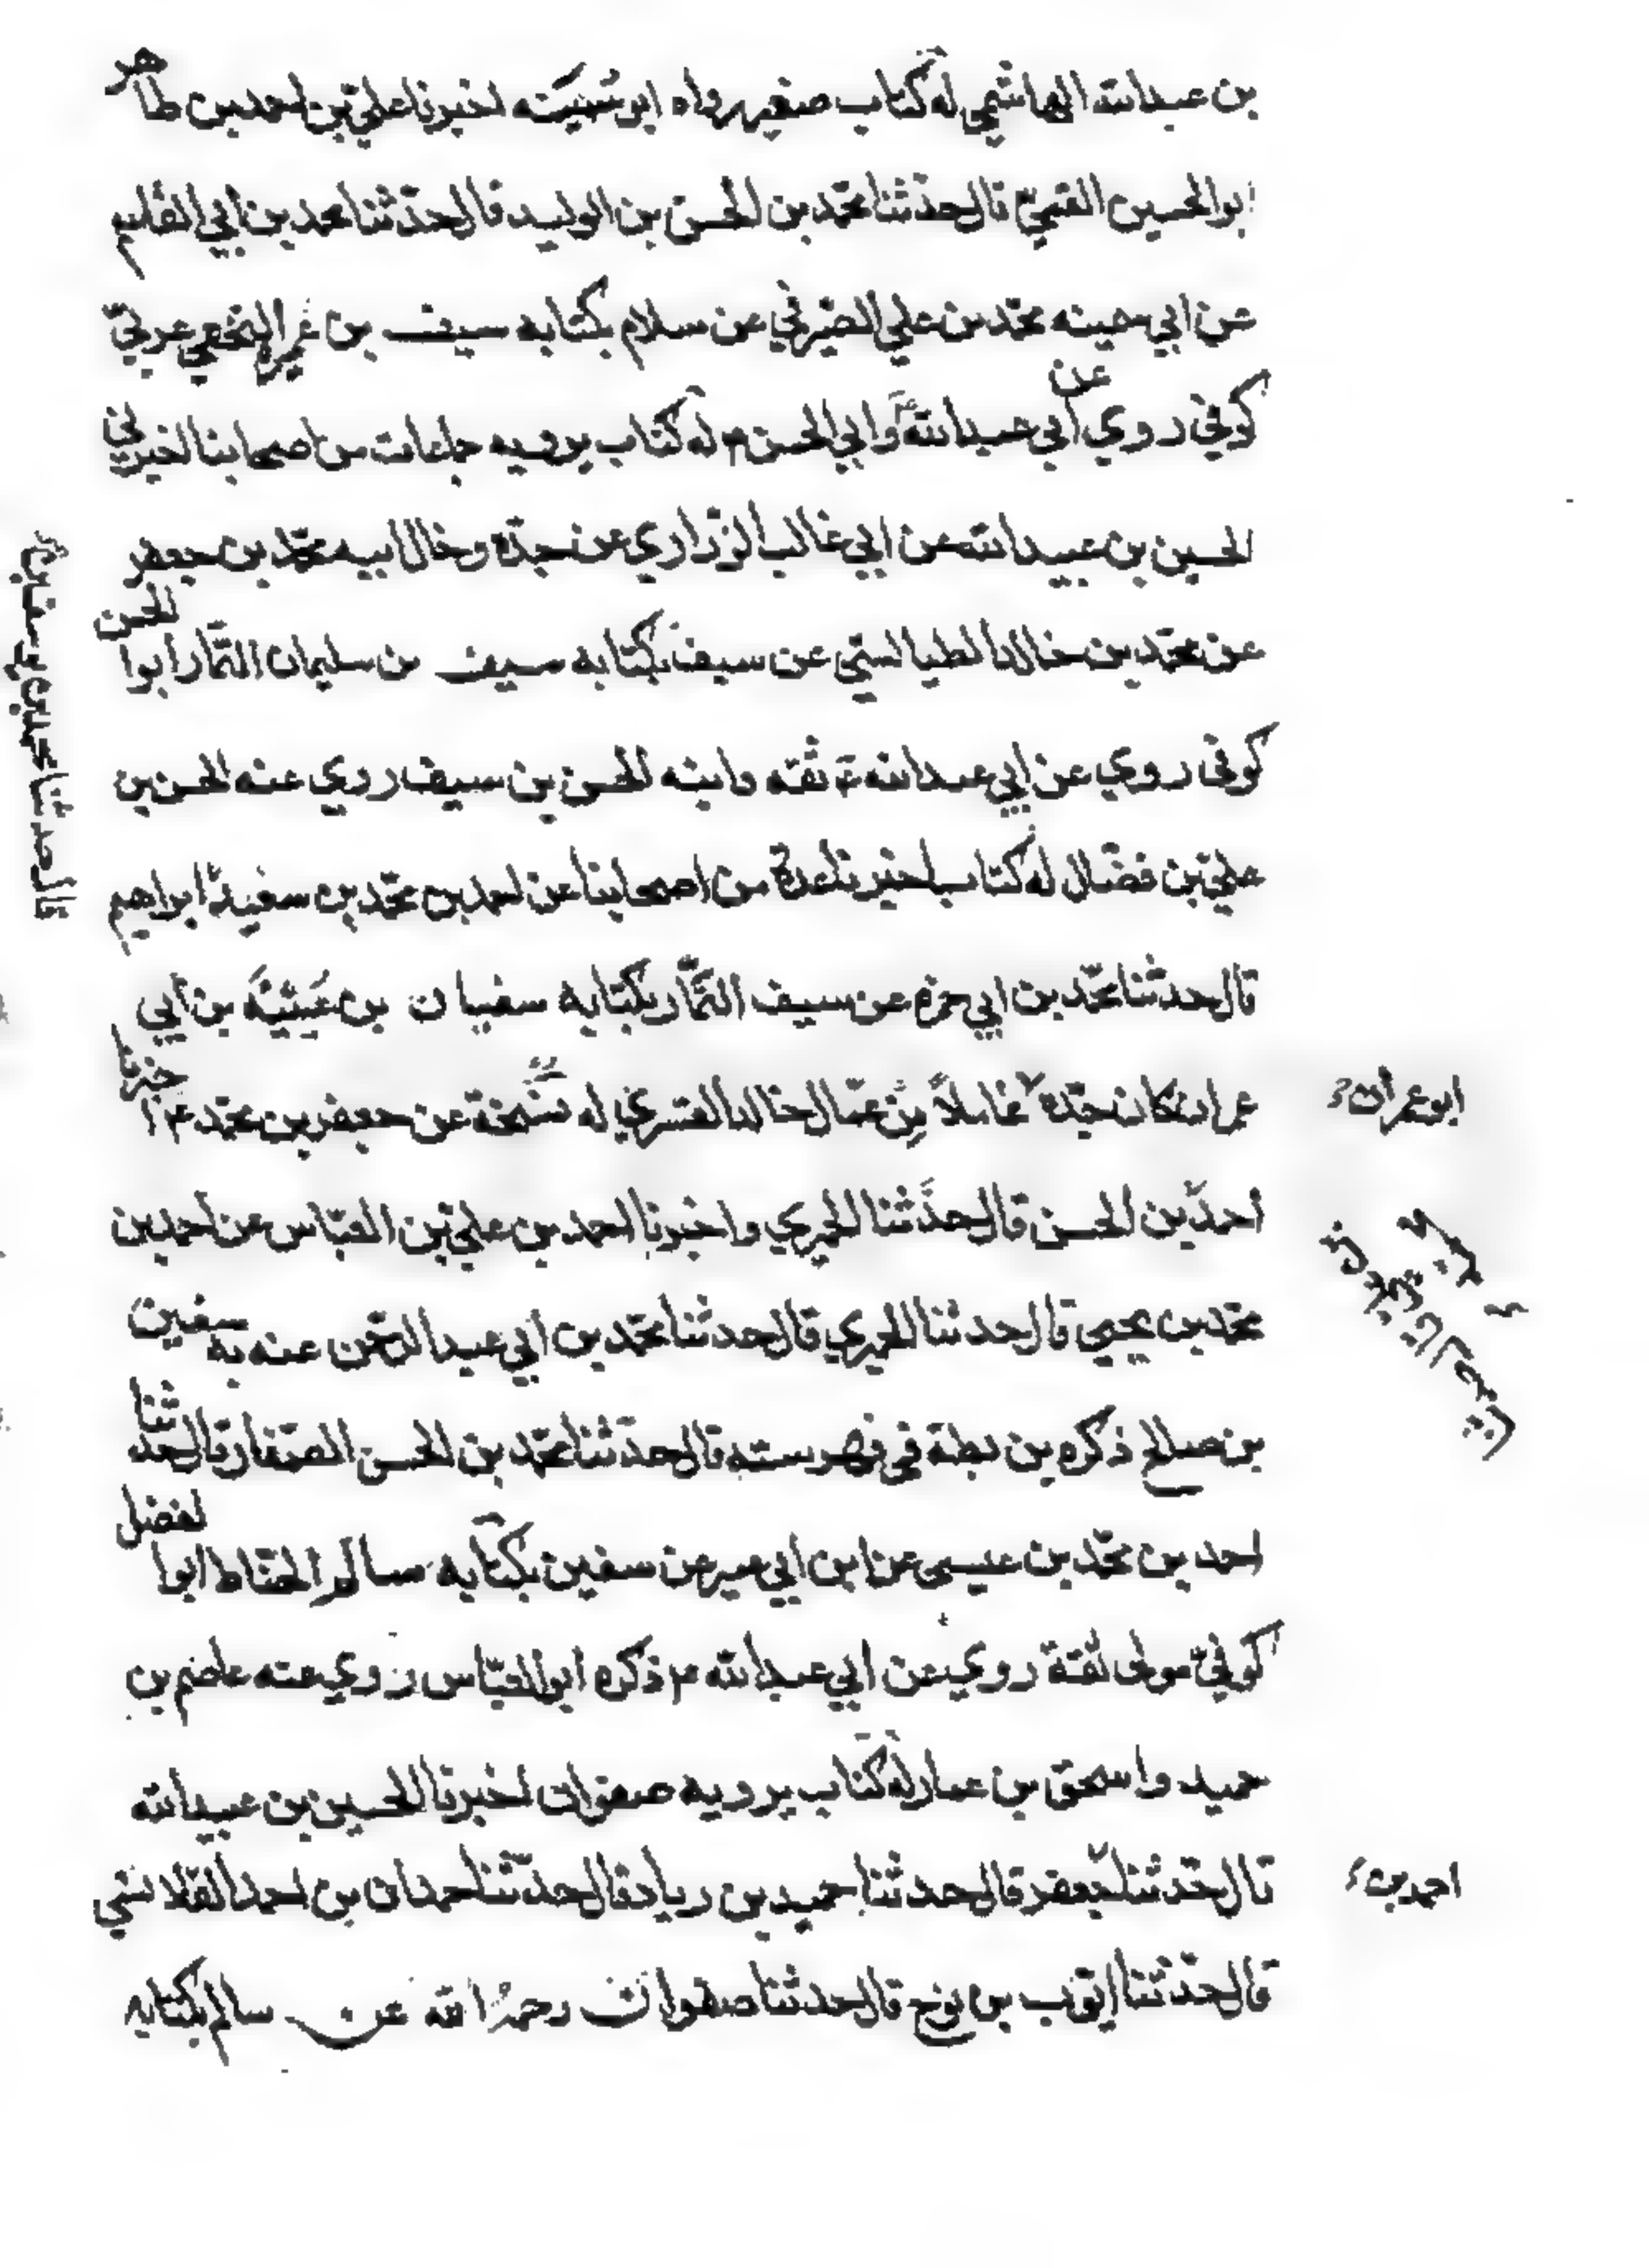 بن عبدالله الهاشمي له كتاب صغير رواه ابو سُمَيْنَه اخبرنا علي بن احمد بن طاهر
ابوالحسين القميّ قال حدثنا محمّد بن الحسن بن الوليد قال حدّثنا محمد بن ابي القاسم
عن ابي سمينه محمّد بن علي الصّيرفي عن سلام بكتابه سيف بن عميرة النخعي عربيّ
كوفيّ روي عن ابي عبدالله ع وابي الحسن م له كتاب يرويه جماعات من اصحابنا اخبرني
الحسين بن عبيدالله عن ابي غالب الزراري عن جدّه وخال ابيه محمّد بن جعفر
عن محمّد بن خالد الطيالسيّ عن سيف بكتابه سيف بن سليمان التمّار ابوا الحسن
كوفى روي عن ابي عبدالله ع ثقه وابنه الحسن بن سيف روي عنه الحسن بن
علي بن فضّال له كتاب اخبرنا عدة من اصحابنا عن احمد بن محمّد بن سعيد ابراهيم
قال حدثنا محمّد بن ابي حمزه عن سيف التمّار بكتابه سفيان بن عُيَيْنَة بن ابي
عمران كان جدّه عاملاً مِن عمّال خالد القسري له نسخة عن جعفر بن محمّد ع اخبرنا
احمد بن الحسن قال حدَثنا الحميري واخبرنا احمد بن علي بن العبّاس عن احمد بن
محمّد بن يحيى قال حدثنا الحميري قال حدثنا محمّد بن ابي عبد الرحمن عنه به سفين
بن صالح ذكره بن بطة في فهرسته قال حدّثنا محمّد بن الحسن الصفّار قال حدثنا
احمد بن محمّد بن عيسى عن ابن ابي عمير عن سفين بكتابه سالم الحنّاط ابوا لفضل
كوفيّ مولى ثقة روي عن ابي عبدالله م ذكره ابوالعبّاس روي عنه عاصم بن
حميد واسحق بن عمار له كتاب يرويه صفوان اخبرنا الحسين بن عبيدالله
قال حدّثنا جعفر قال حدثنا حميد بن زياد قال حدّثنا حمدان بن احمد القلانسي
قال حدّثنا ايّوب بن نوح قال حدثنا صفوان رحمهُ الله عن سالم بكتابه
ابو عمران
احمد بن